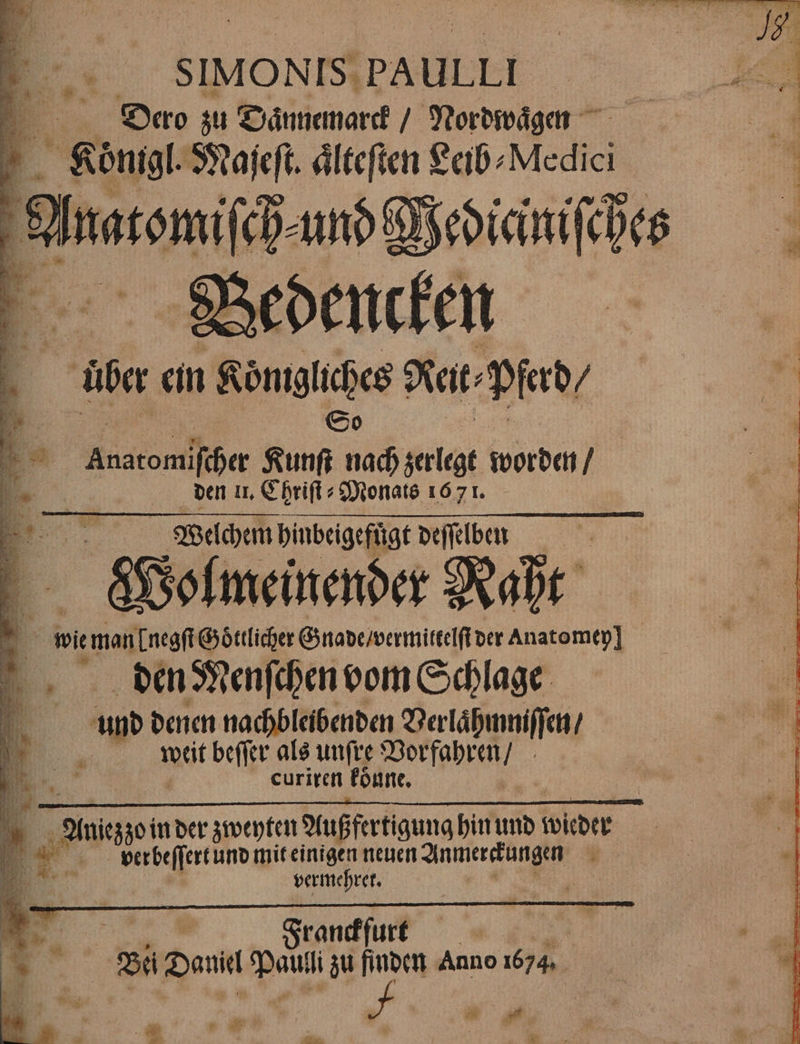 18
SIMONIS PAULLI
Dero zu Dåñnemarck / Nordwågen
Kônigl. Majeſt. ålteſten Leib⸗Medici
Anatomiſch⸗und Mediciniſches
Bedencken
ůber ein Kônigliches Reit⸗Pferd/
So
Anatomiſcher Kunſt nach zerlegt worden/
den 11. Chriſt⸗Monats 1671.
Welchem hinbeigefůgt deſſelben
Wolmeinender Raht
wie man [negſt Gôttlicher Gnade/vermittelſt der Anatomey]
den Menſchen vom Schlage
und denen nachbleibenden Verlåhmniſſen/
weit beſſer als unſre Vorfahren/
curiren kônne.
Aniezzo in der zweyten Außfertigung hin und wieder
verbeſſert und mit einigen neuen Anmerckungen
vermehret.
Franckfurt
Bei Daniel Paulli zu finden Anno 1674.